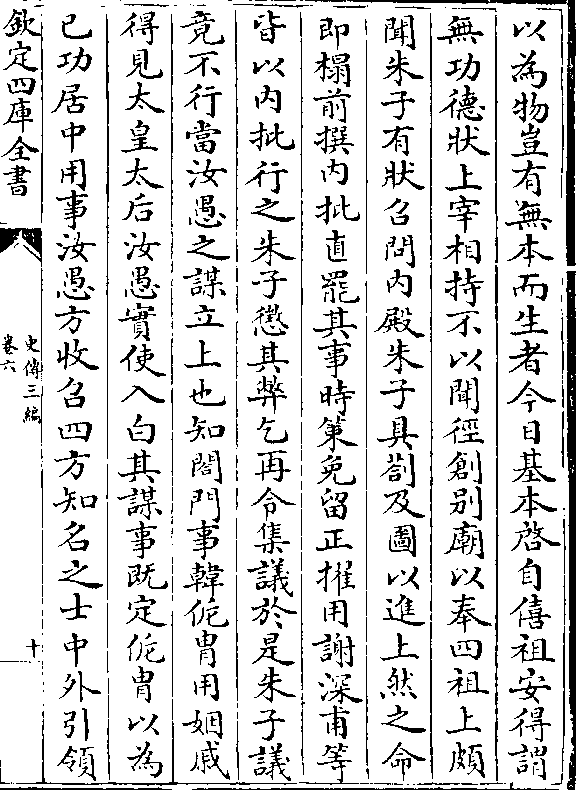 以為物豈有無本而生者今日基本啓自僖祖安得謂
無功德狀上宰相持不以聞徑創别廟以奉四祖上頗
聞朱子有狀召問内殿朱子具劄及圖以進上然之命
即榻前撰内批直罷其事時策免留正擢用謝深甫等
皆以内批行之朱子懲其弊乞再令集議於是朱子議
竟不行當汝愚之謀立上也知閤門事韓侂胄用姻戚
得見太皇太后汝愚實使入白其謀事既定侂胄以為
已功居中用事汝愚方收召四方知名之士中外引領
欽定四庫全書
史傳三編
卷六
十